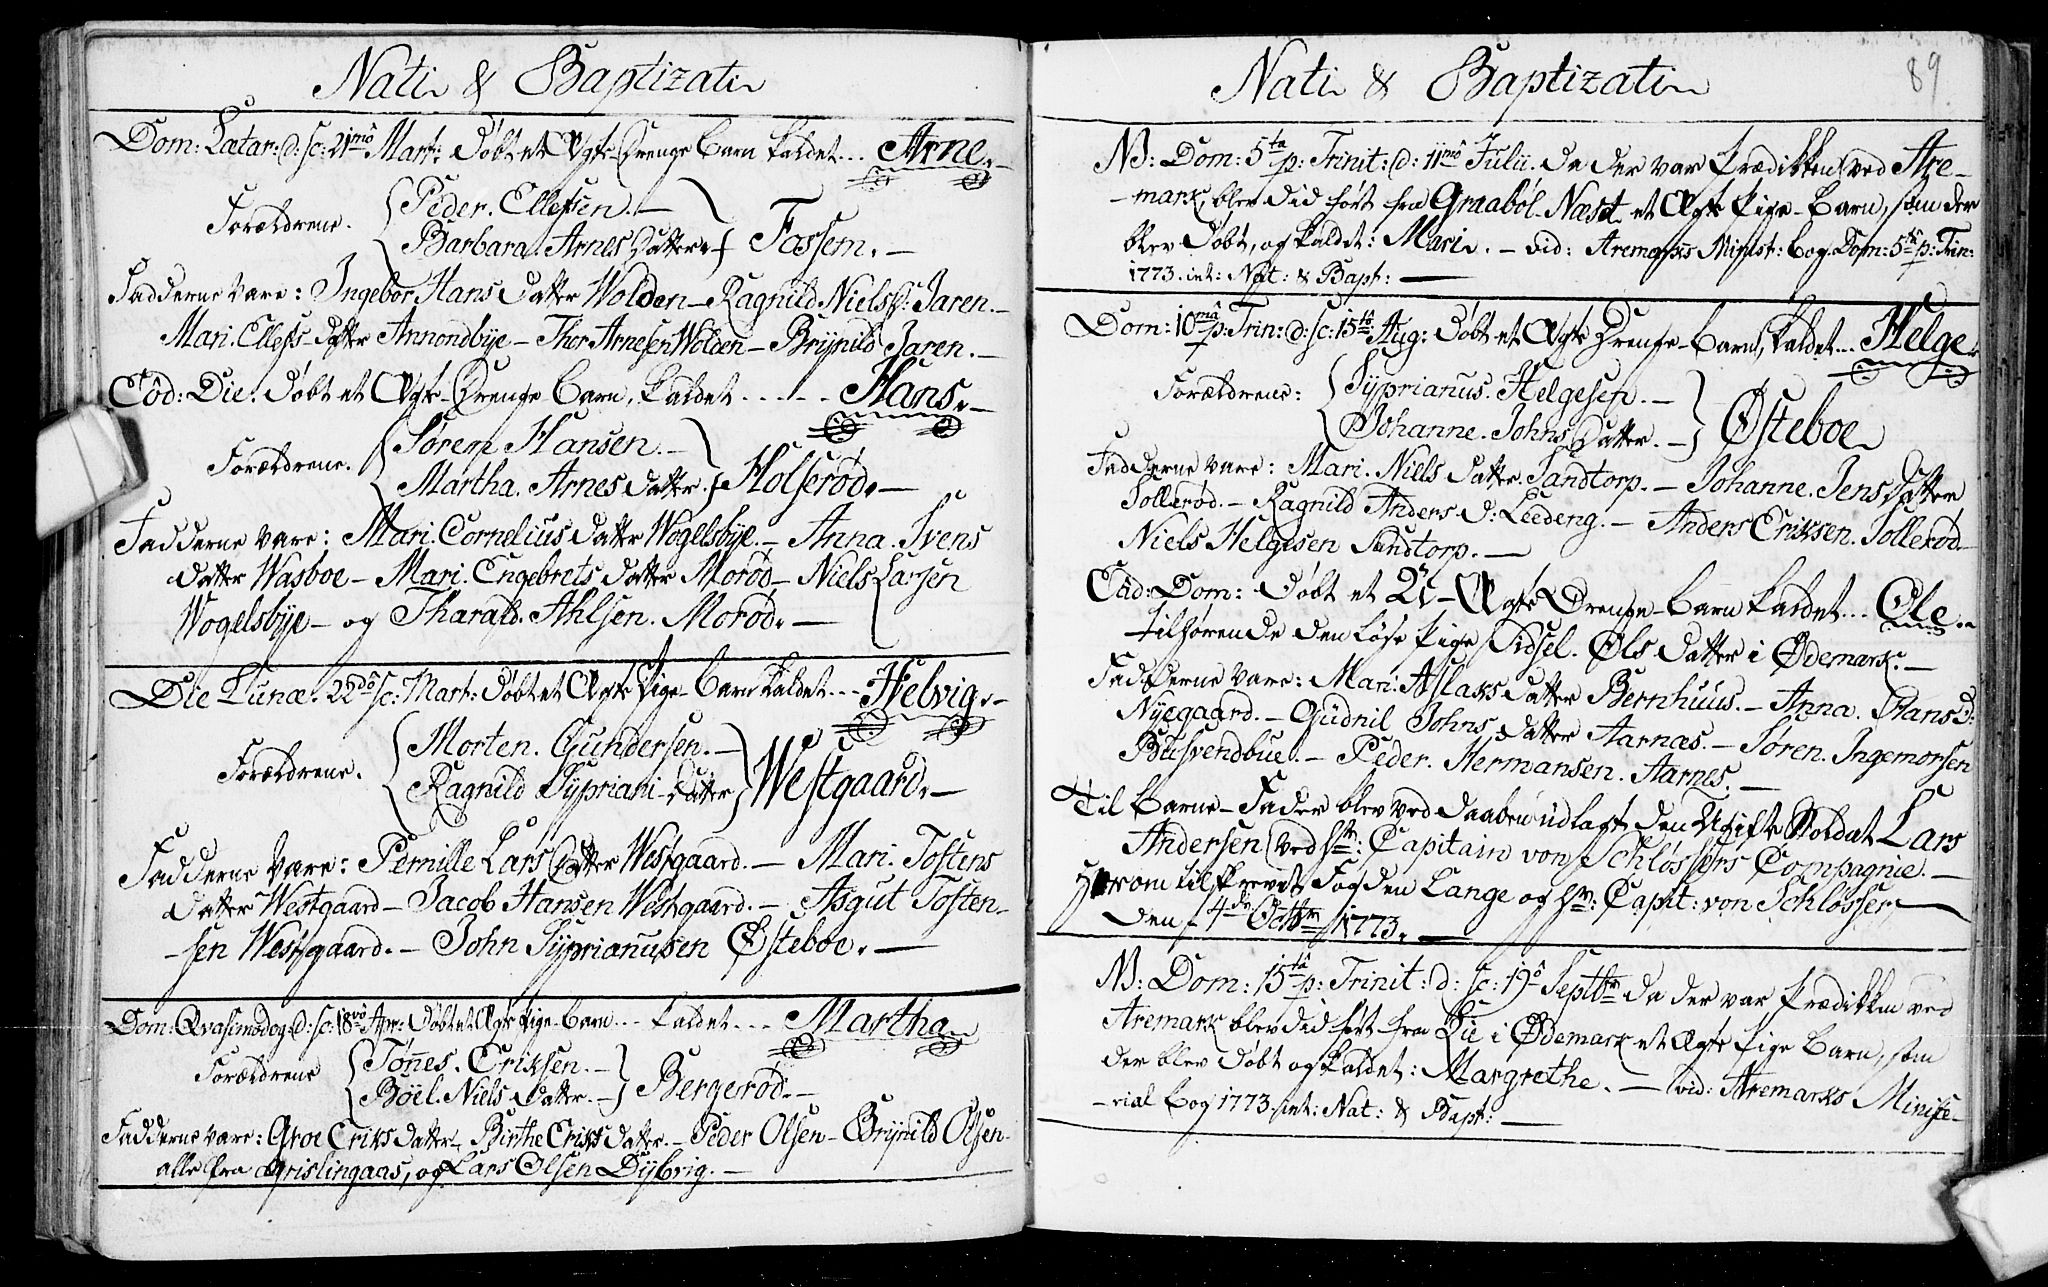 Nati & Baptizati
Dom: Lætar: d: sc: 21mo Mart: Döbt et Ægte Drenge Barn kaldet... Arne.
Forældrene. Peder. Ellefsen.
Barbara. Arnes Datter Fossem.
Fadderne vare: Ingebor Hans Datter Wolden - Ragnild Niels D: Jaren.
Mari. Ellefs-Datter Annondbye - Thor Arnesen Wolden - Brÿnild Jaren.
Eôd: Die. Döbt et Ægte-Drenge Barn, kaldet..... Hans.
Forældrene. Søren Hansen.
Martha. Arnes Datter. Holserød.
Fadderne vare: Mari. Cornelius Datter Wogelsbÿe. - Anna. Ivens
Datter Wasboe - Mari. Engebrets Datter Morød - Niels Larsen
Wogelsbÿe - og Tharald. Ahlsen. Morød.
Die Lunæ. 22do sc: Mart: Döbt et Ægte Pige-Barn kaldet... Helvig.
Forældrene. Morten. Gundersen.
Ragnild Sÿpriani-Datter Westgaard.
Fadderne Vare: Pernille Lars Datter Westgaard. - Mari. Tostens
Datter Westgaard - Jacob Hansen Westgaard. - Asgut Tosten-
sen Westgaard. - John Sÿprianusen Østeboe.
Dom: Qvasimodog: d: sc: 18vo Apr: Döbt et Ægte Pige-Barn... kaldet... Martha
Forældrene Tönes. Eriksen.
Böel. Niels Datter. Bergerød.
Fadderne vare: Groe Eriks Datter - Birthe Eriks Datter. - Peder Olsen - Brÿnild Olsen
alle fra Grislingaas, og Lars Olsen Dÿbvig.
Nati & Baptizati
89
NB: Dom: 5ta p: Trinit: d: 11mo Julii. da der var Prædikken ved Are-
mark, blev did fört fra Graaböl-Næst et Ægte Pige-Barn, som der
blev Döbt, og kaldet: Mari. - vid: Aremarks Minist: Bog. Dom: 5ta p: Trin:
1773. int: Nat: & Bapt:
Dom: 10ma p: Trin: d: sc: 15to Aug: Döbt et Ægte Drenge-Barn, kaldet... Helge
Forældrene: Sÿprianus. Helgesen.
Johanne. Johns Datter. Østeboe
Fadderne vare: Mari. Niels Datter. Sandtorp. - Johanne. Jens Datter
Sollerød. - Ragnild Anders D: Leedeng. - Anders Eriksen. Sollerød
Niels Helgesen Sandtorp.
Eâd: Dom: Döbt et U-Ægte Drenge-Barn kaldet... Ole.
tilhørende den løse Pige Sidsel. Ols Datter i Ødemark.
Fadderne vare: Mari. Aslaks Datter Bernhuus. - Anna. Hans D:
Nÿegaard. - Gudnil Johns Datter Aarnæs. - Søren. Ingemorsen
Busvendbue. - Peder. Hermansen. Aarnes.
Til Barne-Fader blev ved Daaben udlagt den Ugifte Soldat Lars
Andersen ved Hr: Capitain von Schlössers Compagnie.
Herom tilskrevet Fogden Lange og Hr: Capit: von Schlösser
den 4de Octbr 1773.
NB: Dom: 15ta p: Trinit: d: sc: 19o Septbr da der var Prædikken ved
Aremark blev did fört fra Lie i Ødemark et Ægte Pige Barn, som
der blev Döbt og kaldet: Margrethe. - vid: Aremarks Ministe-
rial Bog 1773. int: Nat: & Bapt: